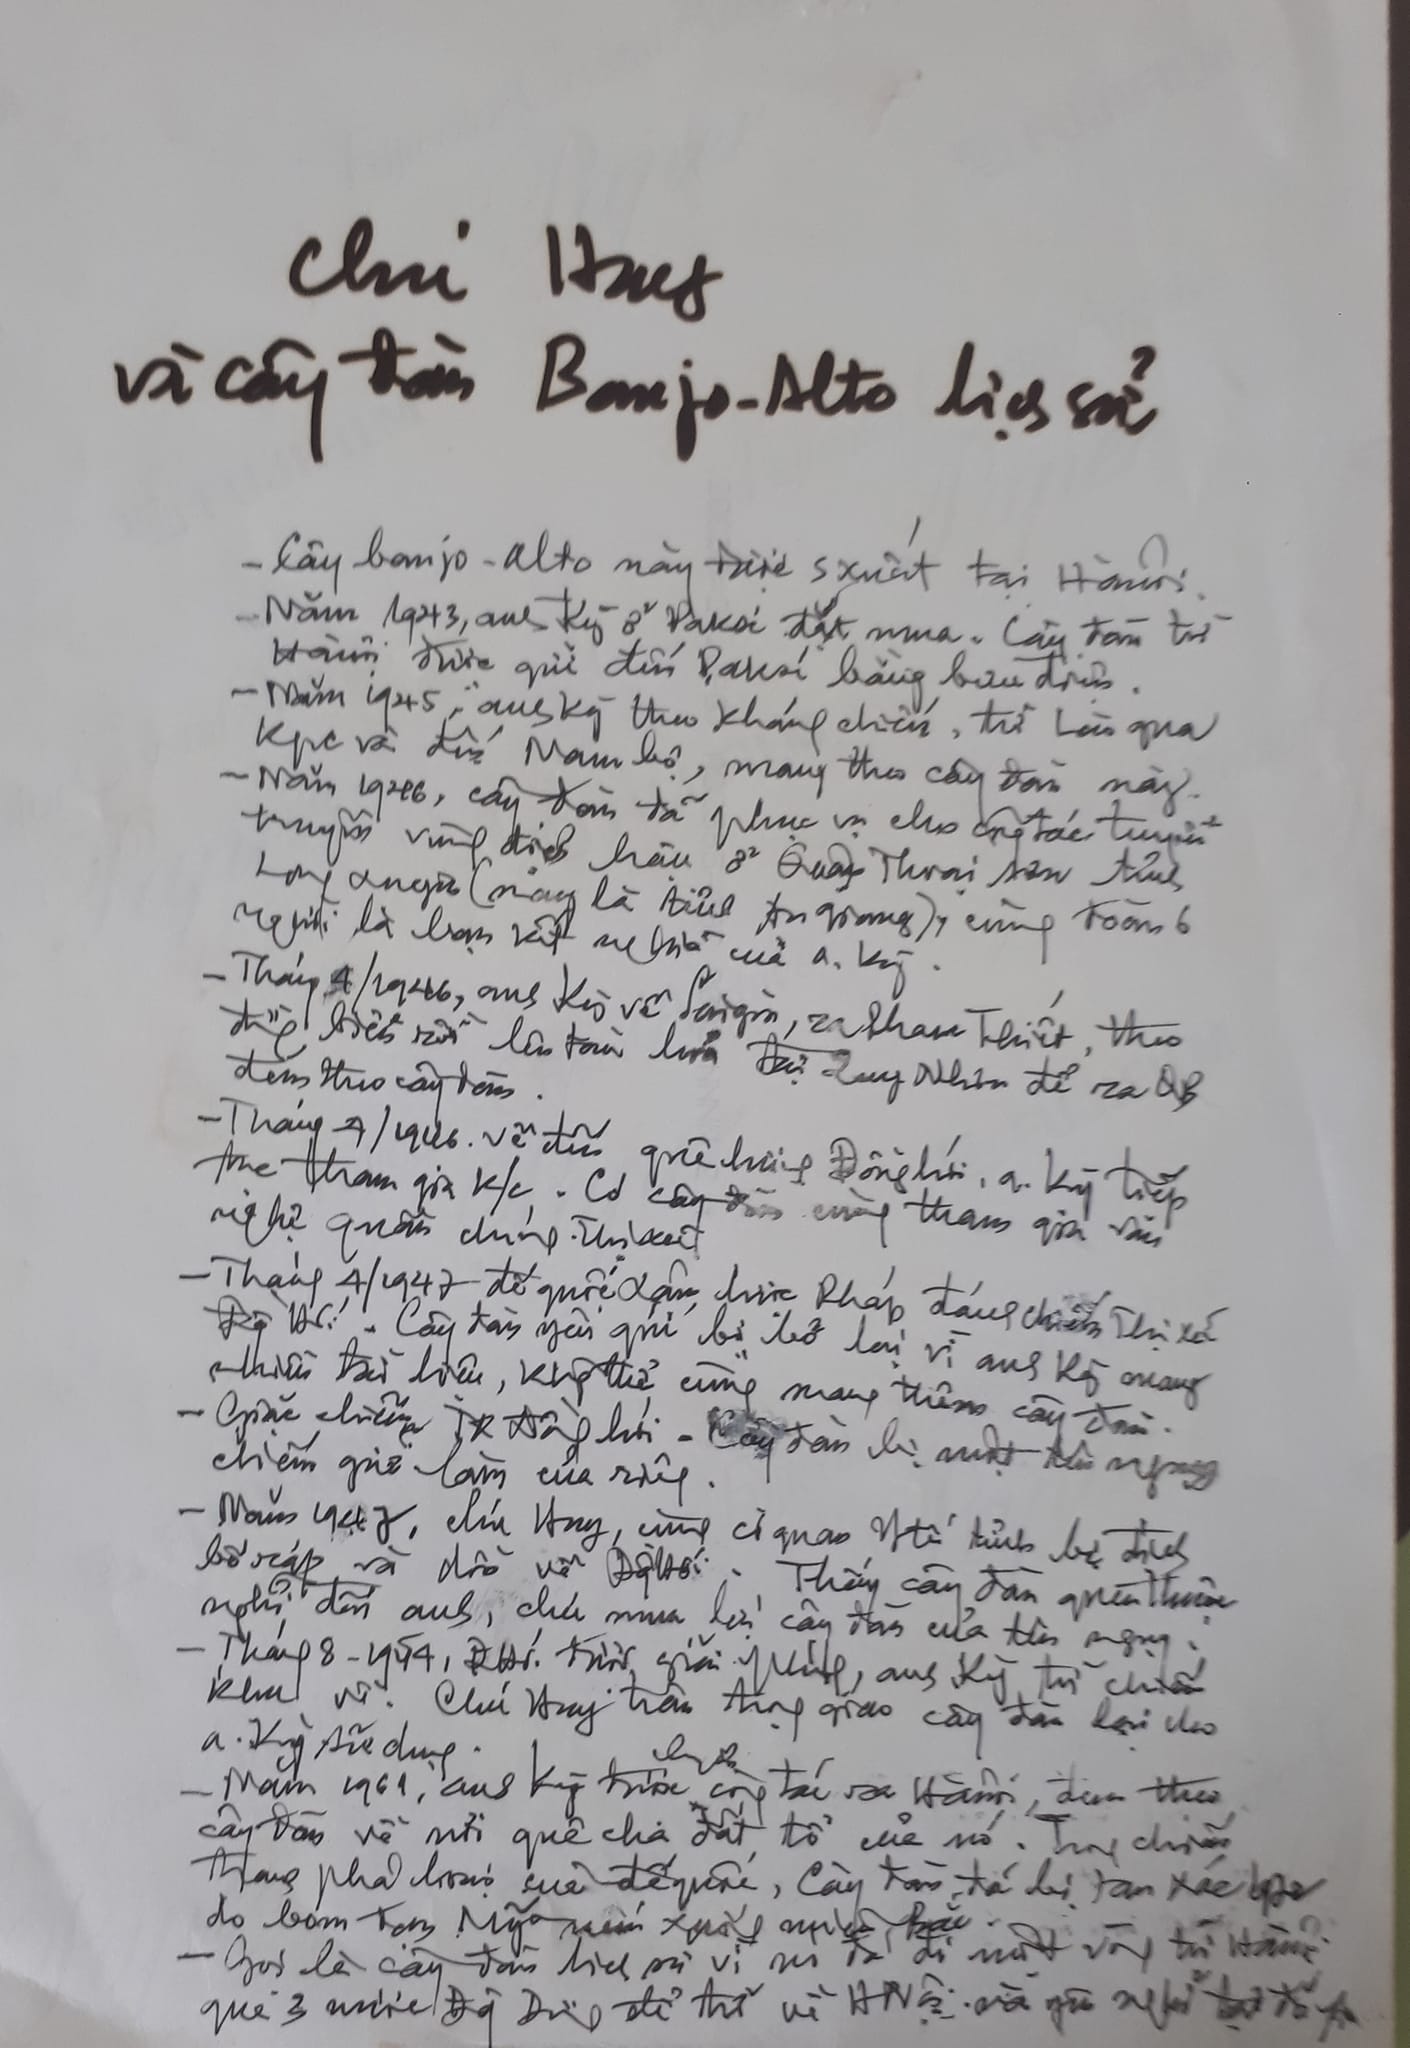 Chú Huy
và cây đàn Banjo-Alto lịch sử
- Cây banjo-Alto này được sxuất tại Hànội.
- Năm 1943, anh Kỳ ở Paksé đặt mua. Cây đàn từ
Hànội được gửi đến Paksé bằng bưu điện.
- Năm 1945, anh Kỳ theo kháng chiến, từ Lào qua
Kpc và đến Nam bộ, mang theo cây đàn này.
- Năm 1946, cây đàn đã phục vụ cho công tác tuyên
truyền vùng địch hậu ở Quận Thoại Sơn tỉnh
Long Xuyên (nay là tỉnh An Giang), cùng toán 6
người là bạn kết nghĩa của a. Kỳ.
- Tháng 4/1946, anh Kỳ về Saigòn, ra Phan Thiết, theo
đường biển rồi lên tàu lửa tại Quy Nhơn để ra QB
đem theo cây đàn.
- Tháng 7/1946. Về đến quê hương Đồng hới, a. Kỳ tiếp
tục tham gia k/c. Có cây đàn cùng tham gia văn
nghệ quần chúng Thị xã
- Tháng 4/1947 đế quốc xâm lược Pháp đánh chiếm Thị xã
Đg Hới. Cây đàn yêu quí bị bỏ lại vì anh Kỳ mang
nhiều tài liệu, không thể cùng mang thêm cây đàn.
- Giặc chiếm TX Đồng hới - Cây đàn bị một tên ngụy
chiếm giữ làm của riêng.
- Năm 1947, chú Huy, cùng cơ quan Y tế tỉnh bị địch
bố ráp và đưa về ĐgHới. Thấy cây đàn quen thuộc
nghĩ đến anh, chú mua lại cây đàn của tên ngụy.
- Tháng 8-1954, ĐHới được giải phóng, anh Kỳ từ chiến
khu về. Chú Huy trân trọng giao cây đàn lại cho
a. Kỳ sử dụng.
- Năm 1961, anh Kỳ được chuyển công tác ra Hànội, đem theo
cây đàn về nơi quê cha đất tổ của nó. Trong chiến
tranh phá hoại của đế quốc, cây đàn đã bị tan xác
do bom đạn Mỹ ném xuống miền Bắc.
- Gọi là cây đàn lịch sử vì nó đã đi một vòng từ Hànội
qua 3 nước Đg Dương để trở về HNội và yên nghỉ tại